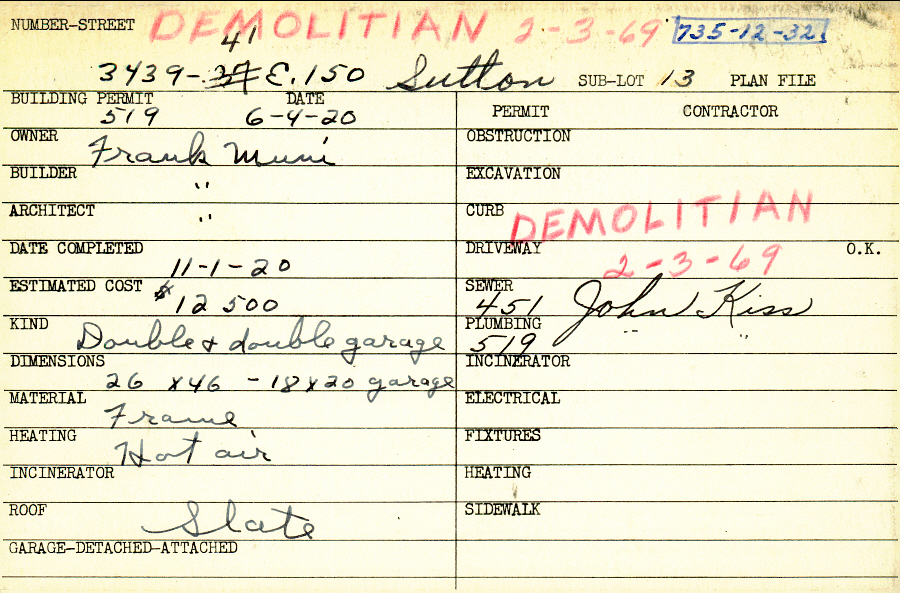 NUMBER-STREET DEMOLITIAN 2-3-69 735-12-32
41
3439-37 E. 150 Sutton SUB-LOT 13 PLAN FILE
BUILDING PERMIT DATE PERMIT CONTRACTOR
519 6-4-20
OWNER Frank Muni OBSTRUCTION
BUILDER " EXCAVATION
ARCHITECT " CURB
DEMOLITIAN
DATE COMPLETED 11-1-20 DRIVEWAY O.K.
2-3-69
ESTIMATED COST $12 500 SEWER
451 John Kiss
KIND Double & double garage PLUMBING
519 " "
DIMENSIONS 26 x46 - 18x20 garage INCINERATOR
MATERIAL Frame ELECTRICAL
HEATING Hot air FIXTURES
INCINERATOR HEATING
ROOF Slate SIDEWALK
GARAGE-DETACHED-ATTACHED